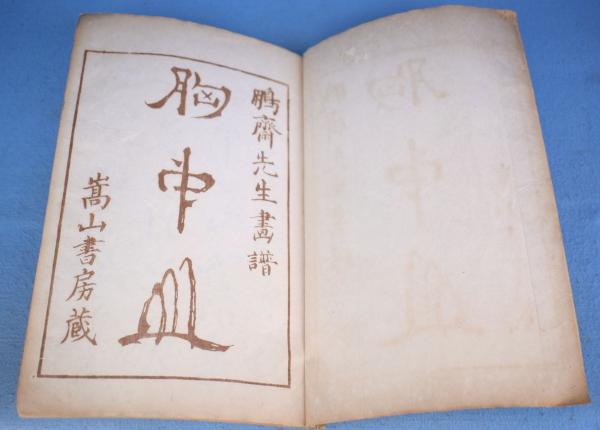 鵬齋先生畫譜
胸中山
嵩山書房蔵